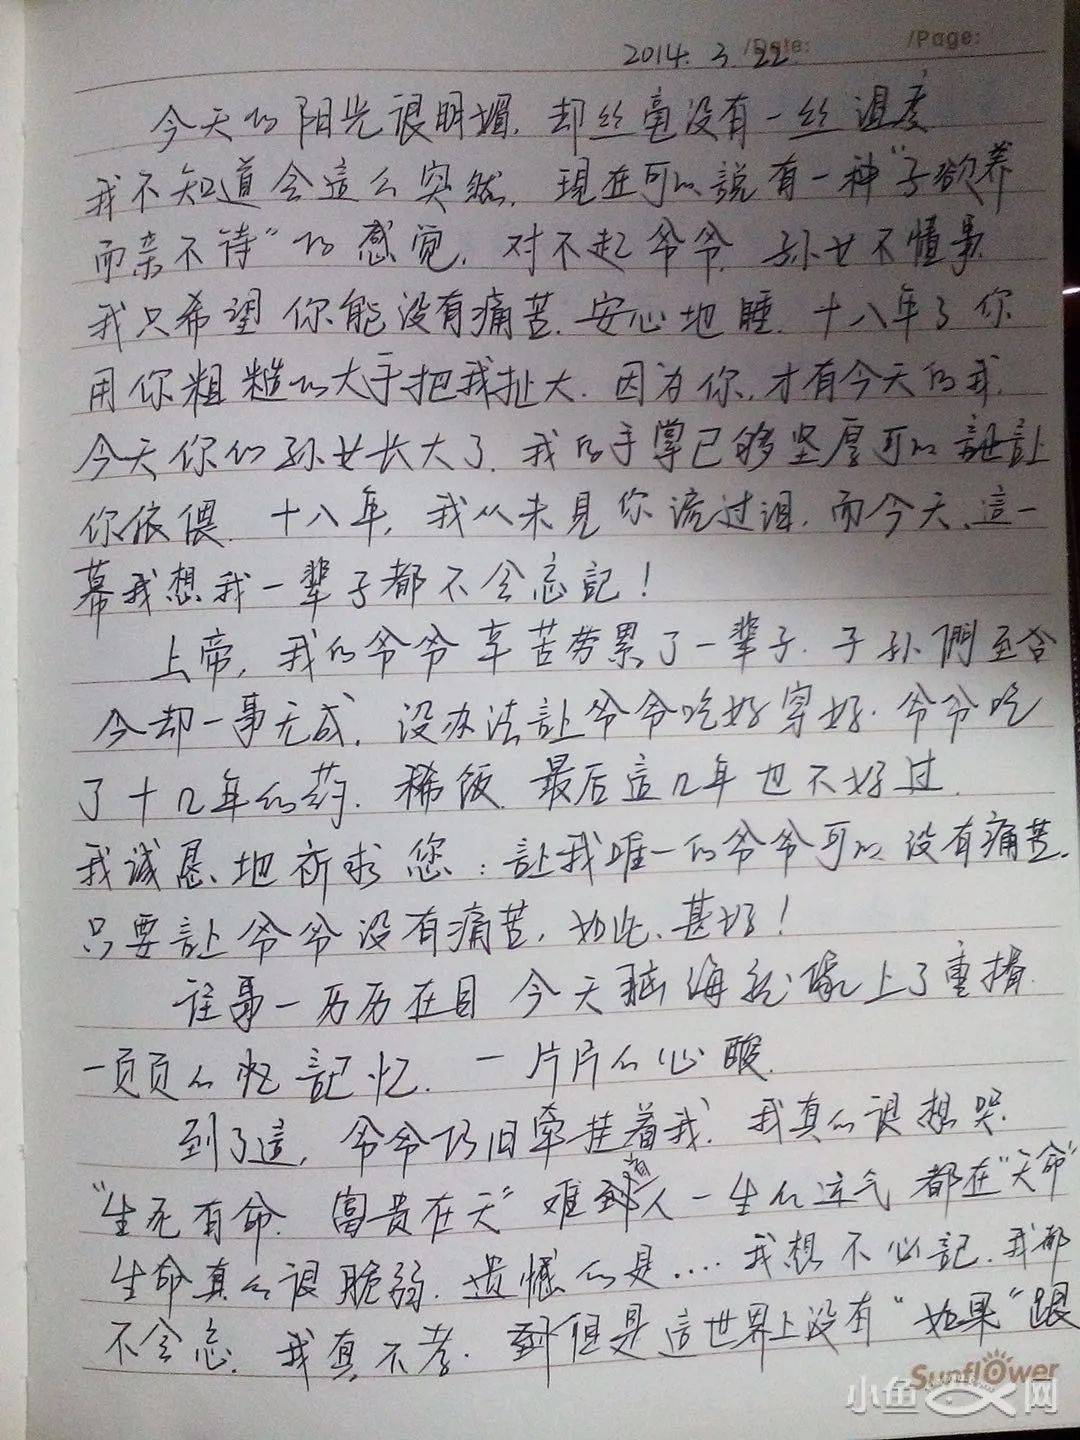 /Date: /Page:
2014. 3 22.
今天的阳光很明媚. 却丝毫没有一丝温度
我不知道会這么突然. 現在可以説有一种“子欲养
而亲不待”的感觉. 对不起爷爷. 孙女不懂事.
我只希望你能没有痛苦. 安心地睡. 十八年了你
用你粗糙的大手把我扯大. 因为你, 才有今天的我.
今天, 你的孙女长大了. 我的手掌已够坚厚可以 讓
你依偎. 十八年, 我从未見你流过泪. 而今天、這一
幕我想我一辈子都不会忘記!
上帝, 我的爷爷辛苦劳累了一辈子. 子孙們至
今却一事无成. 没办法讓爷爷吃好穿好. 爷爷吃
了十几年的药. 稀饭. 最后這几年也不好过.
我诚恳地祈求您: 讓我唯一的爷爷可以没有痛苦.
只要讓爷爷没有痛苦, 如此、甚好!
往事一历历在目 今天脑海就像上了重揹
一页页的忆 記忆. 一片片的心酸.
到了這, 爷爷仍旧牵挂着我. 我真的很想哭.
“生死有命. 富贵在天” 难道人一生的运气都在“天命”
生命真的很脆弱. 遗憾的是.... 我想不必記. 我都
不会忘. 我真不孝. 但是這世界上没有“如果“跟
Sunflower
小鱼网